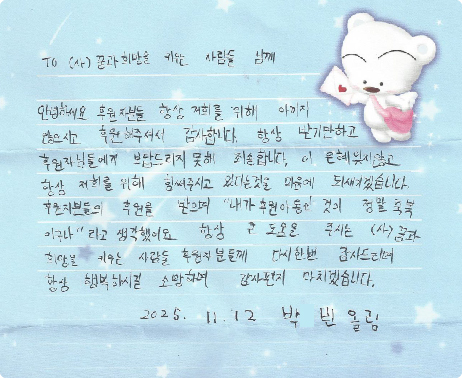 TO (사) 꿈과 희망을 키우는 사람들 님께
안녕하세요 후원자분들 항상 저희를 위해 아끼지
않으시고 후원해주셔서 감사합니다. 항상 받기만하고
후원자님들에게 보답드리지 못해 죄송합니다. 이 은혜 잊지않고
항상 저희를 위해 힘써주시고 있다는것을 마음에 되새겨겠습니다.
후원자분들의 후원을 받으며 "내가 후원아동인 것이 정말 축복
이구나" 라고 생각했어요 항상 큰 도움을 주시는 (사) 꿈과
희망을 키우는 사람들 후원자분들께 다시한번 감사드리며
항상 행복하시길 소망하며 감사편지 마치겠습니다.
2025. 11. 12 박 빈 올림